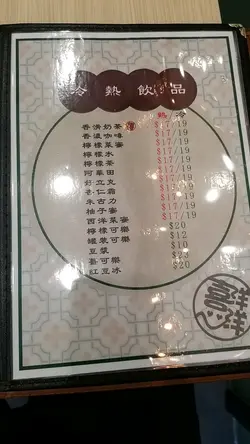 冷熱飲品
熱 冷
香濃奶茶 $17/19
香濃咖啡 $17/19
檸檬菜蜜 $17/19
檸檬水 $17/19
檸檬茶 $17/19
阿華田 $17/19
好立克 $17/19
杏仁霜 $17/19
朱古力 $17/19
柚子蜜 $17/19
西洋菜蜜 $17/19
檸檬可樂 $20
罐裝可樂 $12
豆漿 $10
可樂 $23
紅豆冰 $20